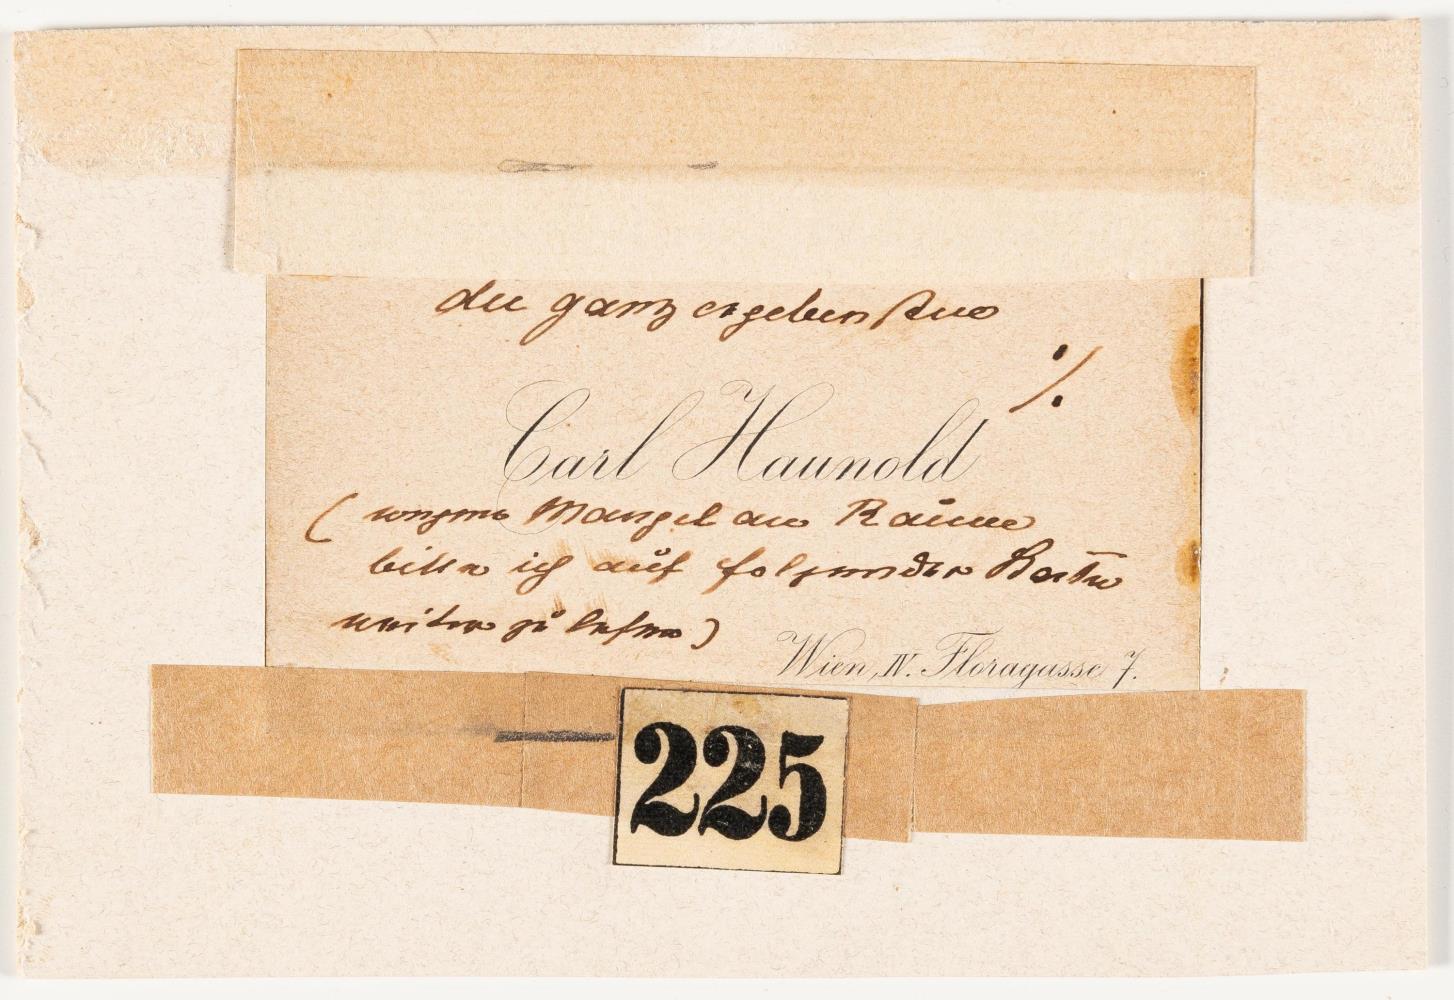 der ganz ergebenstue
./.
Carl Haunold
(wegen Mangel an Raume
bitte ich auf folgender Karte
weiter zu lesen)
Wien, IV. Floragasse 7.
225